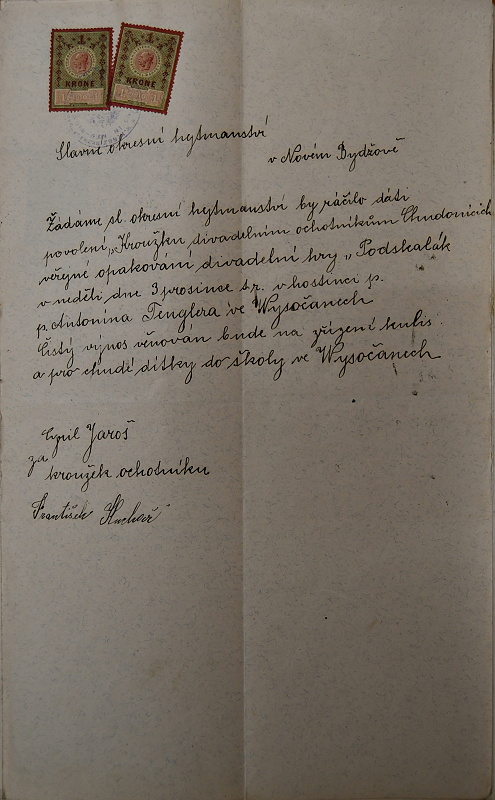 1 1
KRONE
1 1
KRONE
Slavné okresní hejtmanství
v Novém Bydžově
Žádáme sl. okresní hejtmanství by ráčilo dáti
povolení „Kroužku divadelním ochotníkům Chudonicích
veřejné opakování divadelní hry „Podskalák
v neděli dne 3 prosince t.r. v hostinci p.
p. Antonína Tenglera ve Wysočanech
Čistý výnos věnován bude na zřízení kulis
a pro chudé dítky do školy ve Wysočanech
Cyril Jaroš
za
kroužek ochotníku
František